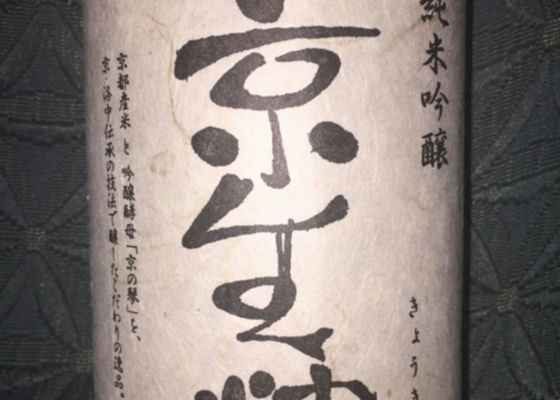 純米吟醸
きょうき
京生粋
京都産米と吟醸酵母「京の琴」を、
京・洛中伝承の技法で醸したこだわりの逸品。